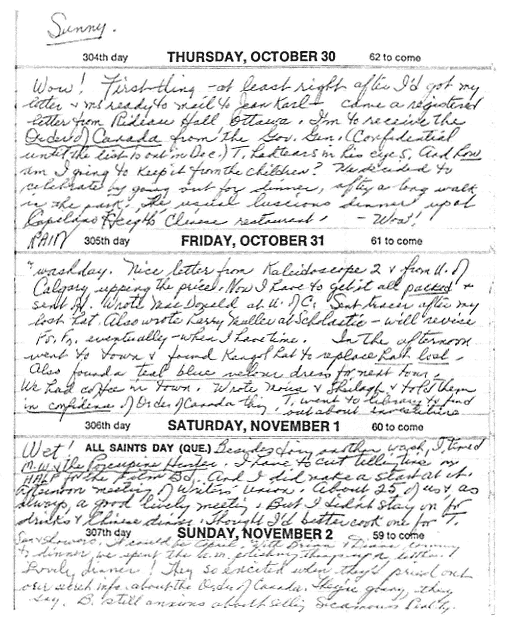 Sunny.
304th day THURSDAY, OCTOBER 30 62 to come
Wow! First thing - at least right after I'd got my
letter & ms ready to mail to Jean Karl - came a registered
letter from Rideau Hall Ottawa. I'm to receive the
Order of Canada from the Gov. Gen. (Confidential
until the list is out in Dec.) T. had tears in his eyes. And how
am I going to keep it from the children? We decided to
celebrate by going out for dinner, after a long walk
in the park, the usual luscious dinner up at
Capilano Heights Chinese restaurant! - Wow!
RAIN 305th day FRIDAY, OCTOBER 31 61 to come
washday. Nice letter from Kaleidoscope 2 & from U. of
Calgary upping the price. Now I have to get it all packed &
sent. Wrote at U. of C. Sent tracer after my
lost hat. Also wrote Larry Muller at Scholastic - will revise
eventually - when I have time. In the afternoon
went to town & found Kangol hat to replace hat lost.
Also found a teal blue velour dress for next tour.
We had coffee in town. Wrote & Sheilagh & told them
in confidence of Order of Canada thing. T. went to library to find
out about investiture
306th day SATURDAY, NOVEMBER 1 60 to come
Wet! ALL SAINTS DAY (QUE.) Besides doing another wash, I
& the Porcupine Herder. I have to cut
for the And I did make a start at it.
afternoon meeting of Writers' Union. About 25 of us & as
always, a good lively meeting. But I didn't stay on for
drinks & Chinese dinner. Thought I'd better cook one for T.
307th day SUNDAY, NOVEMBER 2 59 to come
Sun & showers. With Brian & coming
to dinner, we spent the
Lovely dinner! They so excited when they'd pried out
our secret info. about the Order of Canada. They're going, they
say. B. still anxious about selling